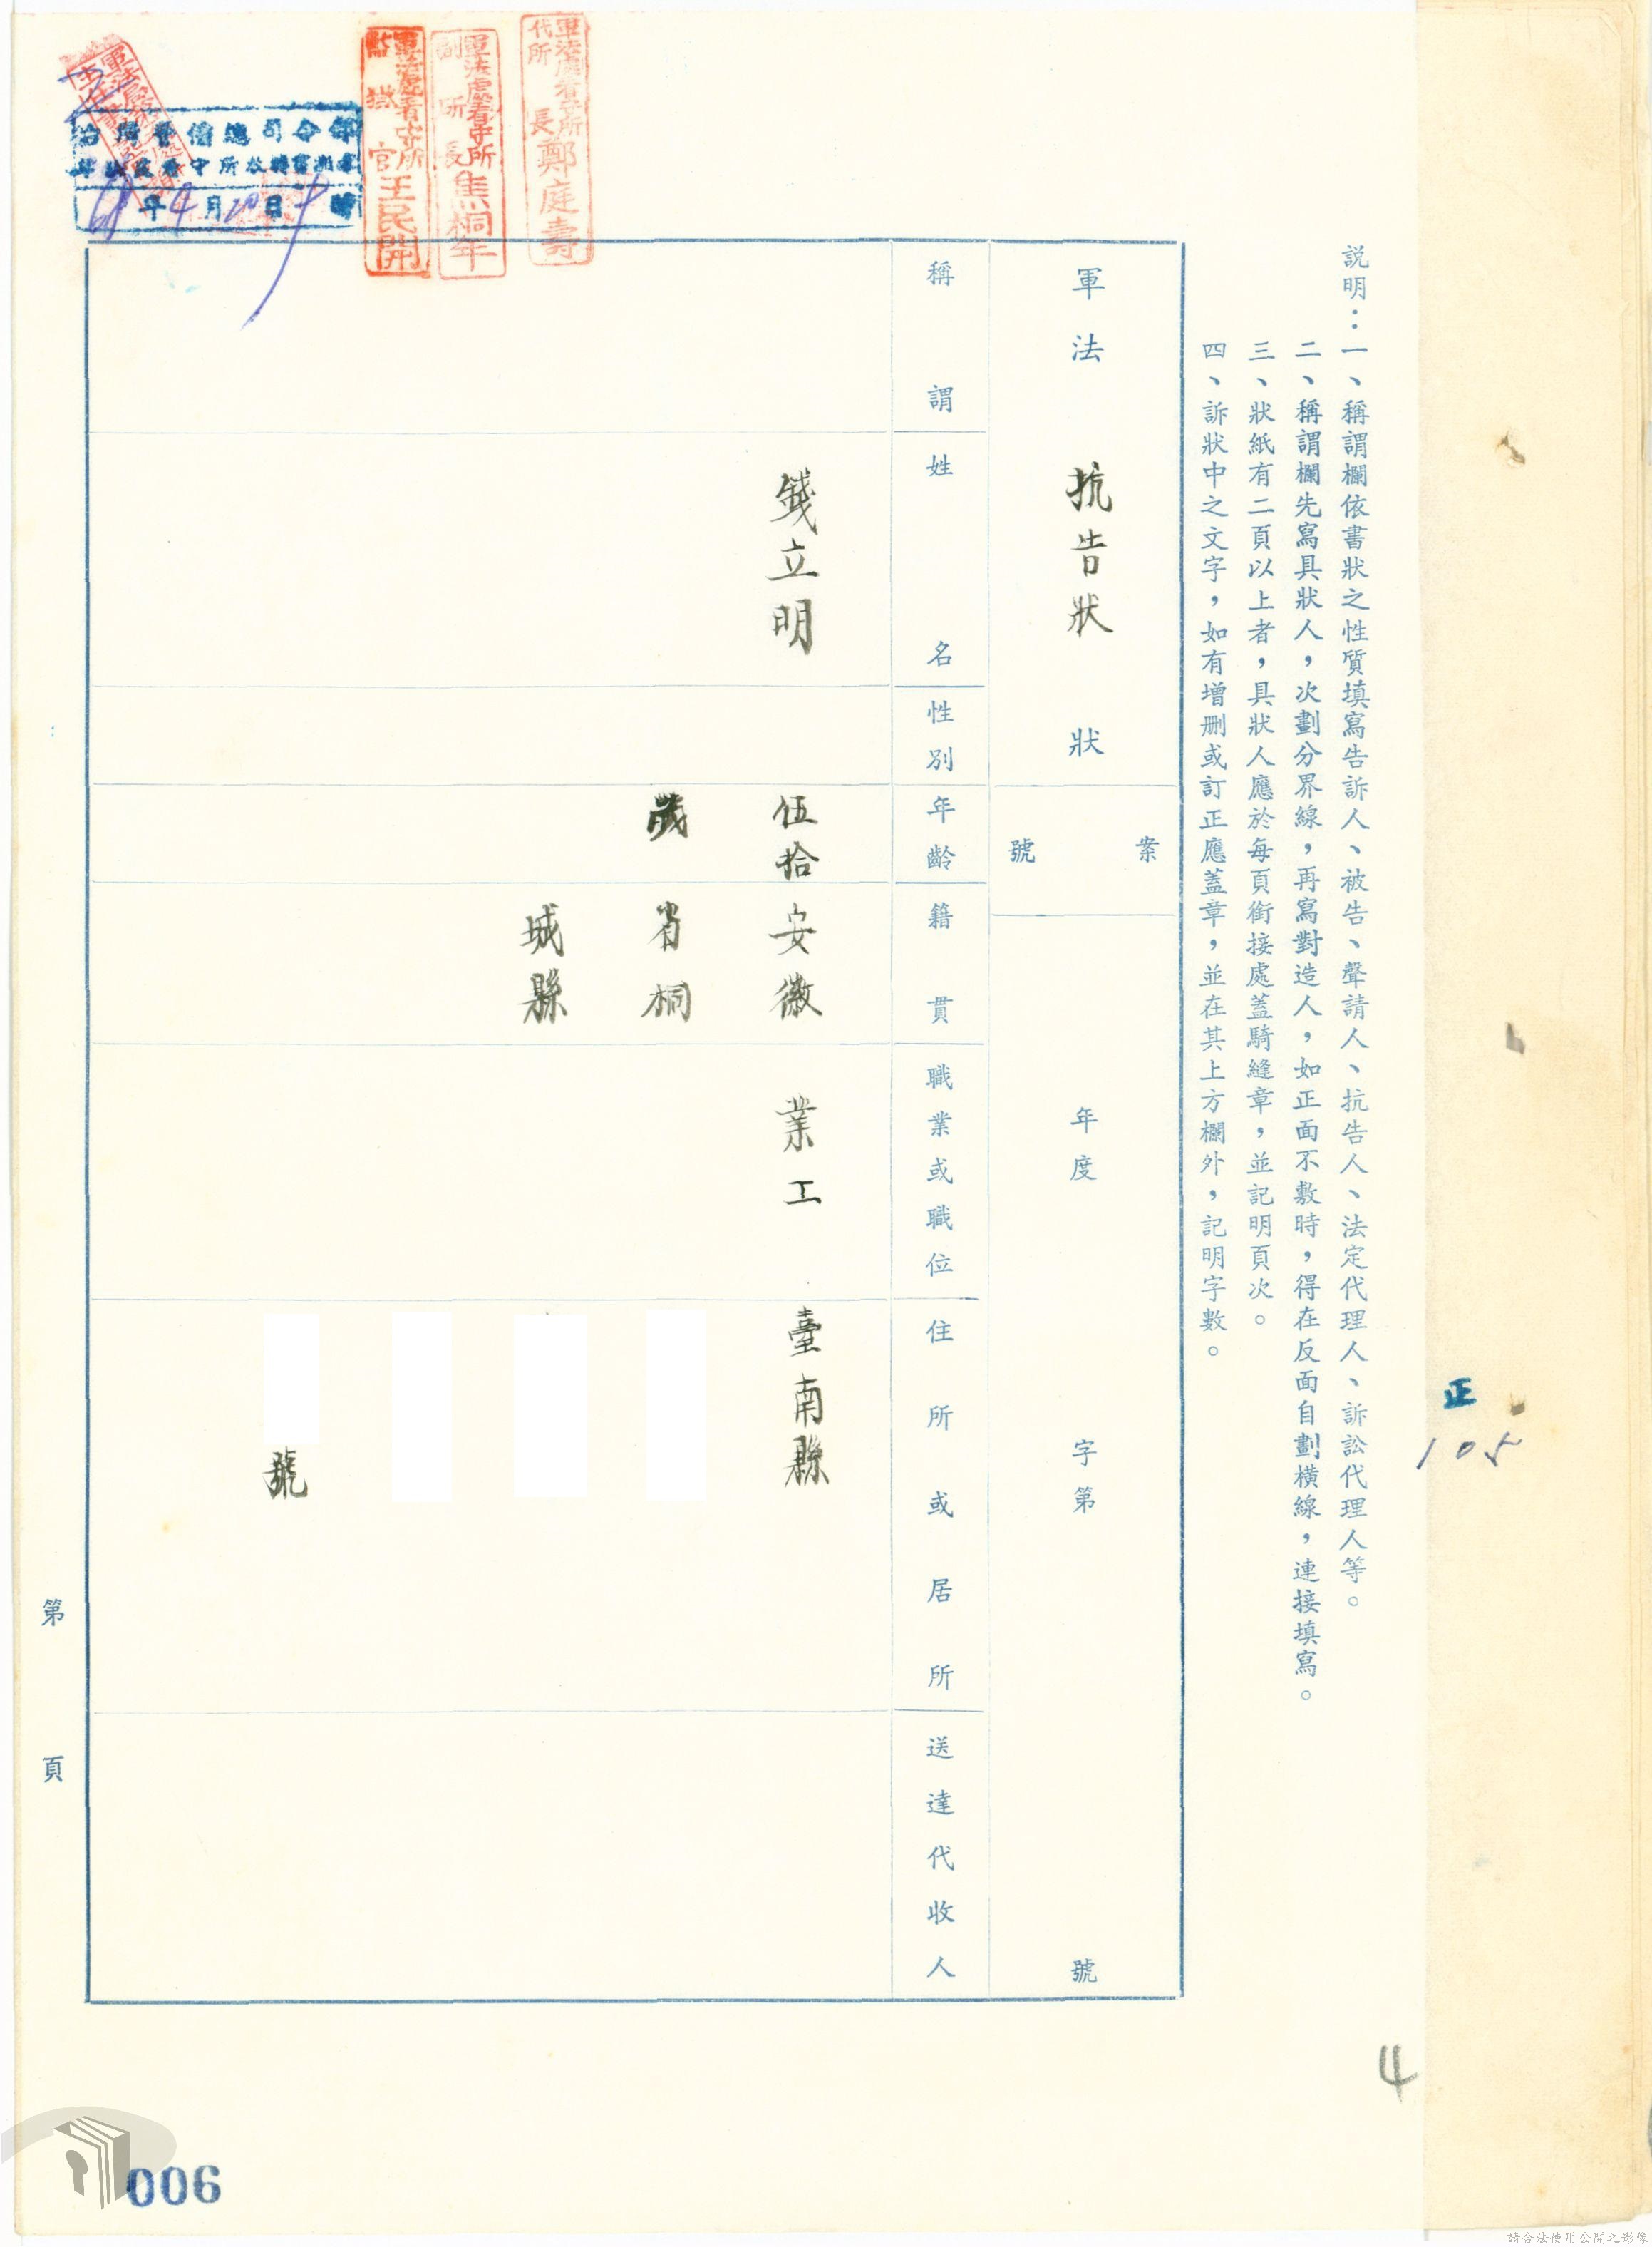 説明：一、稱謂欄依書狀之性質填寫告訴人、被告、聲請人、抗告人、法定代理人、訴訟代理人等。
二、稱謂欄先寫具狀人，次劃分界線，再寫對造人，如正面不敷時，得在反面自劃橫線，連接填寫。
三、狀紙有二頁以上者，具狀人應於每頁銜接處蓋騎縫章，並記明頁次。
四、訴狀中之文字，如有增刪或訂正應蓋章，並在其上方欄外，記明字數。
軍法 抗告狀 狀
案號
年度 字第 號
稱謂
姓名
性別
年齡
籍貫
職業或職位
住所或居所
送達代收人
錢立明
伍拾
歲
安徽
省桐
城縣
業工
臺南縣
號
軍法處看守所
代所長鄭庭壽
軍法處看守所
副所長焦桐年
軍法處看守所
監獄官王民開
年4月20日 時
第 頁
正
105
4
006
請合法使用公開之影像